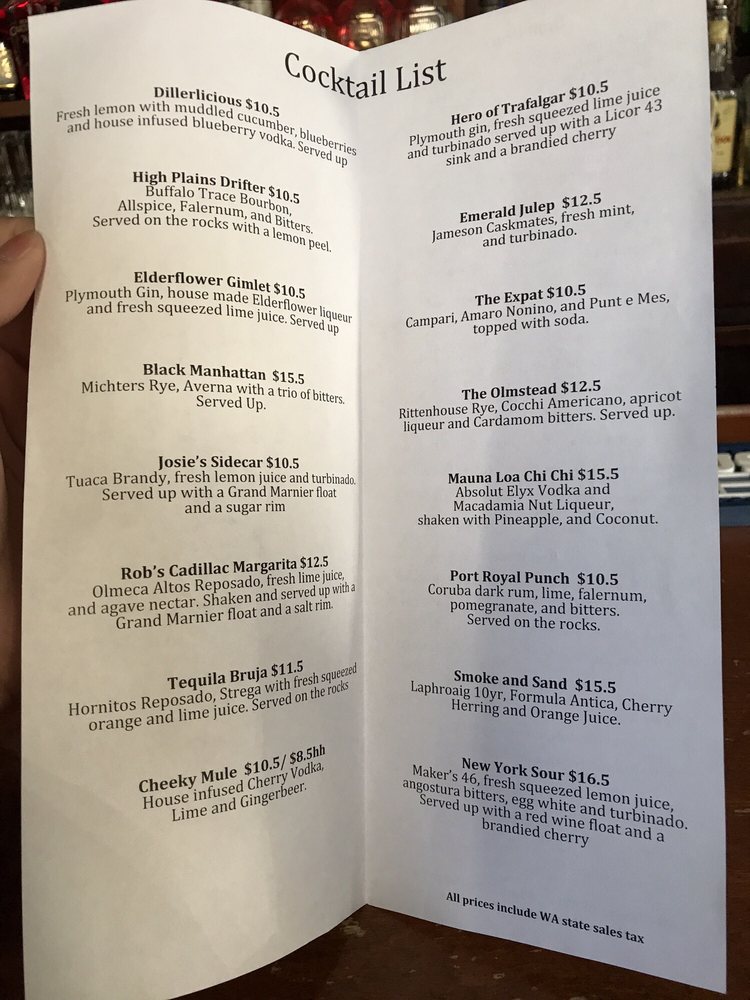 Cocktail List
Dillerlicious $10.5
Fresh lemon with muddled cucumber, blueberries
and house infused blueberry vodka. Served up
High Plains Drifter $10.5
Buffalo Trace Bourbon,
Allspice, Falernum, and Bitters.
Served on the rocks with a lemon peel.
Elderflower Gimlet $10.5
Plymouth Gin, house made Elderflower liqueur
and fresh squeezed lime juice. Served up
Black Manhattan $15.5
Michters Rye, Averna with a trio of bitters.
Served Up.
Josie's Sidecar $10.5
Tuaca Brandy, fresh lemon juice and turbinado.
Served up with a Grand Marnier float
and a sugar rim
Rob's Cadillac Margarita $12.5
Olmeca Altos Reposado, fresh lime juice,
and agave nectar. Shaken and served up with a
Grand Marnier float and a salt rim.
Tequila Bruja $11.5
Hornitos Reposado, Strega with fresh squeezed
orange and lime juice. Served on the rocks
Cheeky Mule $10.5/ $8.5hh
House infused Cherry Vodka,
Lime and Gingerbeer.
Hero of Trafalgar $10.5
Plymouth gin, fresh squeezed lime juice
and turbinado served up with a Licor 43
sink and a brandied cherry
Emerald Julep $12.5
Jameson Caskmates, fresh mint,
and turbinado.
The Expat $10.5
Campari, Amaro Nonino, and Punt e Mes,
topped with soda.
The Olmstead $12.5
Rittenhouse Rye, Cocchi Americano, apricot
liqueur and Cardamom bitters. Served up.
Mauna Loa Chi Chi $15.5
Absolut Elyx Vodka and
Macadamia Nut Liqueur,
shaken with Pineapple, and Coconut.
Port Royal Punch $10.5
Coruba dark rum, lime, falernum,
pomegranate, and bitters.
Served on the rocks.
Smoke and Sand $15.5
Laphroaig 10yr, Formula Antica, Cherry
Herring and Orange Juice.
New York Sour $16.5
Maker's 46, fresh squeezed lemon juice,
angostura bitters, egg white and turbinado.
Served up with a red wine float and a
brandied cherry
All prices include WA state sales tax